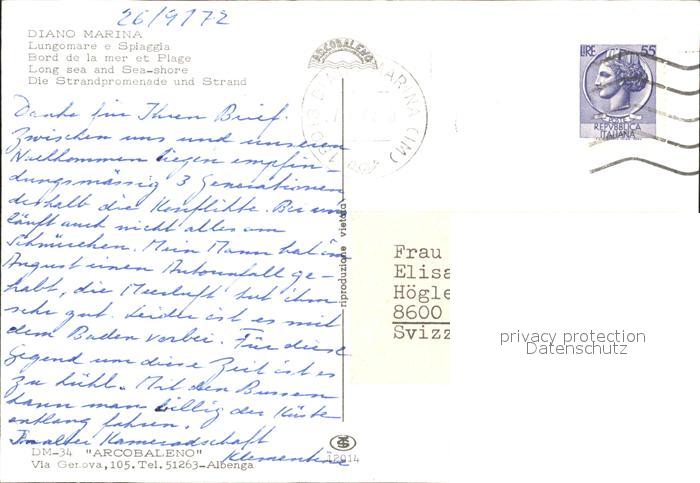 26/9/72
DIANO MARINA
Lungomare e Spiaggia
Bord de la mer et Plage
Long sea and Sea-shore
Die Strandpromenade und Strand
ARCOBALENO
LIRE 55
POSTE
REPVBBLICA
ITALIANA
MARINA (IM)
Danke für Ihren Brief.
Zwischen uns und unseren
liegen empfin-
dungsmässig 3 Generationen
deshalb die Konflikte. Bei uns
läuft auch nicht alles am
Schnürchen. Mein Mann hat im
August einen Autounfall ge-
habt, die Meerluft tut ihm
sehr gut. Leider ist es mit
dem Baden vorbei. Für diese
Gegend um diese Zeit ist es
zu kühl. Mit den Bussen
kann man billig der Küste
entlang fahren.
In alter Kameradschaft
Klementine
riproduzione vietata
Frau
Elisa
Högle
8600
Svizz
privacy protection
Datenschutz
DM-34 "ARCOBALENO"
Via Genova, 105. Tel. 51263-Albenga
12014